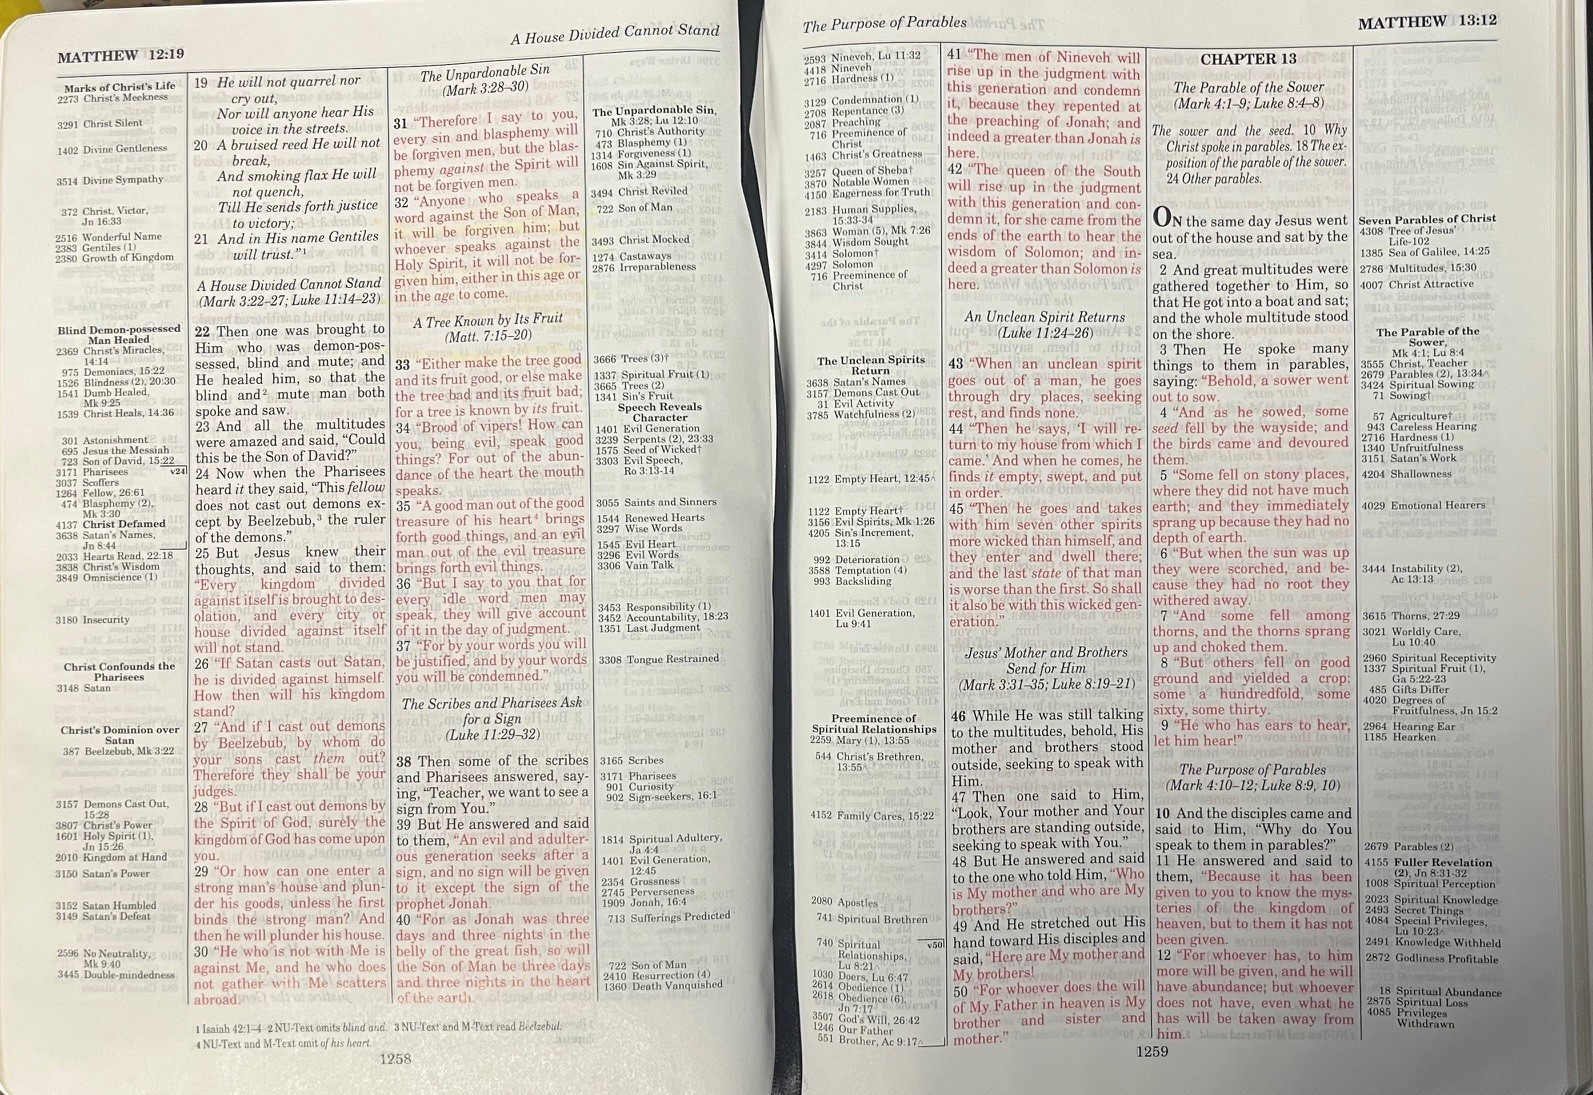 MATTHEW 12:19
A House Divided Cannot Stand
Marks of Christ's Life
2273 Christ's Meekness
3291 Christ Silent
1402 Divine Gentleness
3514 Divine Sympathy
372 Christ, Victor,
Jn 16:33
2516 Wonderful Name
2383 Gentiles (1)
2380 Growth of Kingdom
Blind Demon-possessed
Man Healed
2369 Christ's Miracles,
14:14
975 Demoniacs, 15:22
1526 Blindness (2), 20:30
1541 Dumb Healed,
Mk 9:25
1539 Christ Heals, 14:36
301 Astonishment
695 Jesus the Messiah
723 Son of David, 15:22
3171 Pharisees v24
3037 Scoffers
1264 Fellow, 26:61
474 Blasphemy (2),
Mk 3:30
4137 Christ Defamed
3638 Satan's Names,
Jn 8:44
2033 Hearts Read, 22:18
3838 Christ's Wisdom
3849 Omniscience (1)
3180 Insecurity
Christ Confounds the
Pharisees
3148 Satan
Christ's Dominion over
Satan
387 Beelzebub, Mk 3:22
3157 Demons Cast Out,
15:28
3807 Christ's Power
1601 Holy Spirit (1),
Jn 15:26
2010 Kingdom at Hand
3150 Satan's Power
3152 Satan Humbled
3149 Satan's Defeat
2596 No Neutrality,
Mk 9:40
3445 Double-mindedness
19 He will not quarrel nor
cry out,
Nor will anyone hear His
voice in the streets.
20 A bruised reed He will not
break,
And smoking flax He will
not quench,
Till He sends forth justice
to victory;
21 And in His name Gentiles
will trust."1
A House Divided Cannot Stand
(Mark 3:22–27; Luke 11:14–23)
22 Then one was brought to
Him who was demon-pos-
sessed, blind and mute; and
He healed him, so that the
blind and2 mute man both
spoke and saw.
23 And all the multitudes
were amazed and said, "Could
this be the Son of David?"
24 Now when the Pharisees
heard it they said, "This fellow
does not cast out demons ex-
cept by Beelzebub,3 the ruler
of the demons."
25 But Jesus knew their
thoughts, and said to them:
"Every kingdom divided
against itself is brought to des-
olation, and every city or
house divided against itself
will not stand.
26 "If Satan casts out Satan,
he is divided against himself.
How then will his kingdom
stand?
27 "And if I cast out demons
by Beelzebub, by whom do
your sons cast them out?
Therefore they shall be your
judges.
28 "But if I cast out demons by
the Spirit of God, surely the
kingdom of God has come upon
you.
29 "Or how can one enter a
strong man's house and plun-
der his goods, unless he first
binds the strong man? And
then he will plunder his house.
30 "He who is not with Me is
against Me, and he who does
not gather with Me scatters
abroad.
The Unpardonable Sin
(Mark 3:28–30)
31 "Therefore I say to you,
every sin and blasphemy will
be forgiven men, but the blas-
phemy against the Spirit will
not be forgiven men.
32 "Anyone who speaks a
word against the Son of Man,
it will be forgiven him; but
whoever speaks against the
Holy Spirit, it will not be for-
given him, either in this age or
in the age to come.
A Tree Known by Its Fruit
(Matt. 7:15–20)
33 "Either make the tree good
and its fruit good, or else make
the tree bad and its fruit bad;
for a tree is known by its fruit.
34 "Brood of vipers! How can
you, being evil, speak good
things? For out of the abun-
dance of the heart the mouth
speaks.
35 "A good man out of the good
treasure of his heart4 brings
forth good things, and an evil
man out of the evil treasure
brings forth evil things.
36 "But I say to you that for
every idle word men may
speak, they will give account
of it in the day of judgment.
37 "For by your words you will
be justified, and by your words
you will be condemned."
The Scribes and Pharisees Ask
for a Sign
(Luke 11:29–32)
38 Then some of the scribes
and Pharisees answered, say-
ing, "Teacher, we want to see a
sign from You."
39 But He answered and said
to them, "An evil and adulter-
ous generation seeks after a
sign, and no sign will be given
to it except the sign of the
prophet Jonah.
40 "For as Jonah was three
days and three nights in the
belly of the great fish, so will
the Son of Man be three days
and three nights in the heart
of the earth.
The Unpardonable Sin,
Mk 3:28; Lu 12:10
710 Christ's Authority
473 Blasphemy (1)
1314 Forgiveness (1)
1608 Sin Against Spirit,
Mk 3:29
3494 Christ Reviled
722 Son of Man
3493 Christ Mocked
1274 Castaways
2876 Irreparableness
3666 Trees (3)†
1337 Spiritual Fruit (1)
3665 Trees (2)
1341 Sin's Fruit
Speech Reveals
Character
1401 Evil Generation
3239 Serpents (2), 23:33
1575 Seed of Wicked†
3303 Evil Speech,
Ro 3:13-14
3055 Saints and Sinners
1544 Renewed Hearts
3297 Wise Words
1545 Evil Heart
3296 Evil Words
3306 Vain Talk
3453 Responsibility (1)
3452 Accountability, 18:23
1351 Last Judgment
3308 Tongue Restrained
3165 Scribes
3171 Pharisees
901 Curiosity
902 Sign-seekers, 16:1
1814 Spiritual Adultery,
Ja 4:4
1401 Evil Generation,
12:45
2354 Grossness
2745 Perverseness
1909 Jonah, 16:4
713 Sufferings Predicted
722 Son of Man
2410 Resurrection (4)
1360 Death Vanquished
1 Isaiah 42:1–4 2 NU-Text omits blind and. 3 NU-Text and M-Text read Beelzebul.
4 NU-Text and M-Text omit of his heart.
1258
The Purpose of Parables
MATTHEW 13:12
2593 Nineveh, Lu 11:32
4418 Nineveh
2716 Hardness (1)
3129 Condemnation (1)
2708 Repentance (3)
2087 Preaching
716 Preeminence of
Christ
1463 Christ's Greatness
3257 Queen of Sheba†
3870 Notable Women
4150 Eagerness for Truth
2183 Human Supplies,
15:33-34
3863 Woman (5), Mk 7:26
3844 Wisdom Sought
3414 Solomon†
4297 Solomon
716 Preeminence of
Christ
The Unclean Spirits
Return
3638 Satan's Names
3157 Demons Cast Out
31 Evil Activity
3785 Watchfulness (2)
1122 Empty Heart, 12:45^
1122 Empty Heart†
3156 Evil Spirits, Mk 1:26
4205 Sin's Increment,
13:15
992 Deterioration
3588 Temptation (4)
993 Backsliding
1401 Evil Generation,
Lu 9:41
Preeminence of
Spiritual Relationships
2259 Mary (1), 13:55
544 Christ's Brethren,
13:55^
4152 Family Cares, 15:22
2080 Apostles
741 Spiritual Brethren
740 Spiritual v50
Relationships,
Lu 8:21
1030 Doers, Lu 6:47
2614 Obedience (1)
2618 Obedience (6),
Jn 7:17
3507 God's Will, 26:42
1246 Our Father
551 Brother, Ac 9:17^
41 "The men of Nineveh will
rise up in the judgment with
this generation and condemn
it, because they repented at
the preaching of Jonah; and
indeed a greater than Jonah is
here.
42 "The queen of the South
will rise up in the judgment
with this generation and con-
demn it, for she came from the
ends of the earth to hear the
wisdom of Solomon; and in-
deed a greater than Solomon is
here.
An Unclean Spirit Returns
(Luke 11:24–26)
43 "When an unclean spirit
goes out of a man, he goes
through dry places, seeking
rest, and finds none.
44 "Then he says, 'I will re-
turn to my house from which I
came.' And when he comes, he
finds it empty, swept, and put
in order.
45 "Then he goes and takes
with him seven other spirits
more wicked than himself, and
they enter and dwell there;
and the last state of that man
is worse than the first. So shall
it also be with this wicked gen-
eration."
Jesus' Mother and Brothers
Send for Him
(Mark 3:31–35; Luke 8:19–21)
46 While He was still talking
to the multitudes, behold, His
mother and brothers stood
outside, seeking to speak with
Him.
47 Then one said to Him,
"Look, Your mother and Your
brothers are standing outside,
seeking to speak with You."
48 But He answered and said
to the one who told Him, "Who
is My mother and who are My
brothers?"
49 And He stretched out His
hand toward His disciples and
said, "Here are My mother and
My brothers!
50 "For whoever does the will
of My Father in heaven is My
brother and sister and
mother."
CHAPTER 13
The Parable of the Sower
(Mark 4:1–9; Luke 8:4–8)
The sower and the seed. 10 Why
Christ spoke in parables. 18 The ex-
position of the parable of the sower.
24 Other parables.
ON the same day Jesus went
out of the house and sat by the
sea.
2 And great multitudes were
gathered together to Him, so
that He got into a boat and sat;
and the whole multitude stood
on the shore.
3 Then He spoke many
things to them in parables,
saying: "Behold, a sower went
out to sow.
4 "And as he sowed, some
seed fell by the wayside; and
the birds came and devoured
them.
5 "Some fell on stony places,
where they did not have much
earth; and they immediately
sprang up because they had no
depth of earth.
6 "But when the sun was up
they were scorched, and be-
cause they had no root they
withered away.
7 "And some fell among
thorns, and the thorns sprang
up and choked them.
8 "But others fell on good
ground and yielded a crop:
some a hundredfold, some
sixty, some thirty.
9 "He who has ears to hear,
let him hear!"
The Purpose of Parables
(Mark 4:10–12; Luke 8:9, 10)
10 And the disciples came and
said to Him, "Why do You
speak to them in parables?"
11 He answered and said to
them, "Because it has been
given to you to know the mys-
teries of the kingdom of
heaven, but to them it has not
been given.
12 "For whoever has, to him
more will be given, and he will
have abundance; but whoever
does not have, even what he
has will be taken away from
him.
Seven Parables of Christ
4308 Tree of Jesus'
Life-102
1385 Sea of Galilee, 14:25
2786 Multitudes, 15:30
4007 Christ Attractive
The Parable of the
Sower,
Mk 4:1; Lu 8:4
3555 Christ, Teacher
2679 Parables (2), 13:34^
3424 Spiritual Sowing
71 Sowing†
57 Agriculture†
943 Careless Hearing
2716 Hardness (1)
1340 Unfruitfulness
3151 Satan's Work
4204 Shallowness
4029 Emotional Hearers
3444 Instability (2),
Ac 13:13
3615 Thorns, 27:29
3021 Worldly Care,
Lu 10:40
2960 Spiritual Receptivity
1337 Spiritual Fruit (1),
Ga 5:22-23
485 Gifts Differ
4020 Degrees of
Fruitfulness, Jn 15:2
2964 Hearing Ear
1185 Hearken
2679 Parables (2)
4155 Fuller Revelation
(2), Jn 8:31-32
1008 Spiritual Perception
2023 Spiritual Knowledge
2493 Secret Things
4084 Special Privileges,
Lu 10:23^
2491 Knowledge Withheld
2872 Godliness Profitable
18 Spiritual Abundance
2875 Spiritual Loss
4085 Privileges
Withdrawn
1259